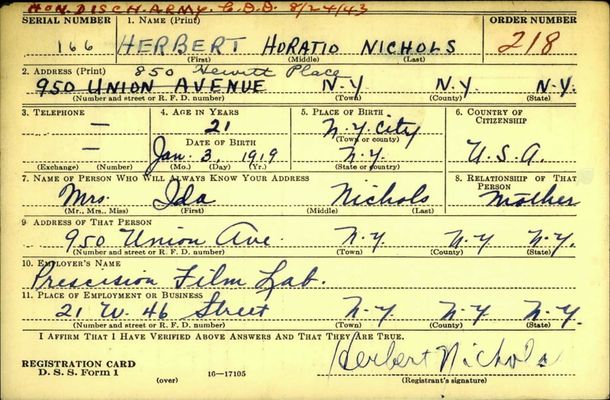 HON. DISCH. ARMY. C.D.D. 8/24/43
SERIAL NUMBER 1. NAME (Print) ORDER NUMBER
166 HERBERT HORATIO NICHOLS 218
(First) (Middle) (Last)
2. ADDRESS (Print) 850 Hewitt Place
950 UNION AVENUE N.Y. N.Y. N.Y.
(Number and street or R. F. D. number) (Town) (County) (State)
3. TELEPHONE 4. AGE IN YEARS 5. PLACE OF BIRTH 6. COUNTRY OF CITIZENSHIP
— 21 N.Y. City
DATE OF BIRTH (Town or county)
— Jan. 3, 1919 N.Y. U.S.A.
(Exchange) (Number) (Mo.) (Day) (Yr.) (State or country)
7. NAME OF PERSON WHO WILL ALWAYS KNOW YOUR ADDRESS 8. RELATIONSHIP OF THAT PERSON
Mrs. Ida Nichols Mother
(Mr., Mrs., Miss) (First) (Middle) (Last)
9 ADDRESS OF THAT PERSON
950 Union Ave. N.Y. N.Y N.Y.
(Number and street or R. F. D. number) (Town) (County) (State)
10. EMPLOYER'S NAME
Prescision Film Lab.
11. PLACE OF EMPLOYMENT OR BUSINESS
21 W. 46 Street N.Y. N.Y N.Y.
(Number and street or R. F. D. number) (Town) (County) (State)
I AFFIRM THAT I HAVE VERIFIED ABOVE ANSWERS AND THAT THEY ARE TRUE.
Herbert Nichols
REGISTRATION CARD
D. S. S. Form 1 (over) 16—17105 (Registrant's signature)